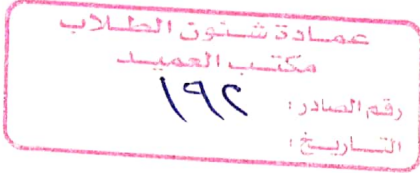 عمادة شئون الطلاب
مكتب العميد
رقم الصادر: ١٩٢
التاريخ: